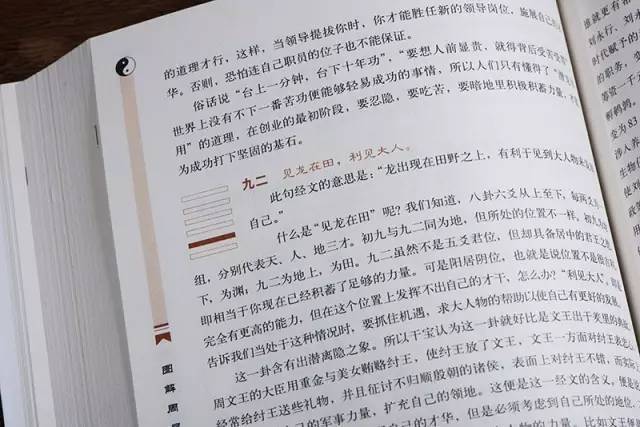 的道理才行，这样，当领导提拔你时，你才能胜任新的领导岗位，施展自己
华，否则，恐怕连自己职员的位子也不能保证。
俗话说“台上一分钟，台下十年功”，“要想人前显贵，就得背后受苦受
世界上没有不下一番苦功便能够轻易成功的事情，所以人们只有懂得了“潜龙
用”的道理，在创业的最初阶段，要忍隐，要吃苦，要暗地里积极积蓄力量，
为成功打下坚固的基石。
九二 见龙在田，利见大人。
此句经文的意思是：“龙出现在田野之上，有利于见到大人物
自己。”
什么是“见龙在田”呢？我们知道，八卦六爻从上至下，每两爻
组，分别代表天、人、地三才。初九与九二同为地，但所处的位置不一样。初九
下，为渊；九二为地上，为田。九二虽然不是五爻君位，但却具备居中的君王之
即相当于你现在已经积蓄了足够的力量。可是阳居阴位，也就是说位置不
完全有更高的能力，但在这个位置上发挥不出自己的才干，怎么办？“利见大人”，即是
告诉我们当处于这种情况时，要抓住机遇，求大人物的帮助以使自己有更好的发展。
这一卦含有出潜离隐之象。所以干宝认为这一卦就好比是文王出于羑里的
周文王的大臣用重金与美女贿赂纣王，使纣王放了文王，文王一方面对纣王
经常给纣王送些礼物，并且征讨不归顺殷朝的诸侯，表面上对纣王不错，而实际
自己的军事力量，扩充自己的领地。这便是这一经文的含义。便是
自己的才华，但是必须考虑到自己所处的地位。
图解周
谁就更有
刘永行、刘
时代赋予的
的职务，变
筹资一千
鹌鹑
变为83
涉人养
生物